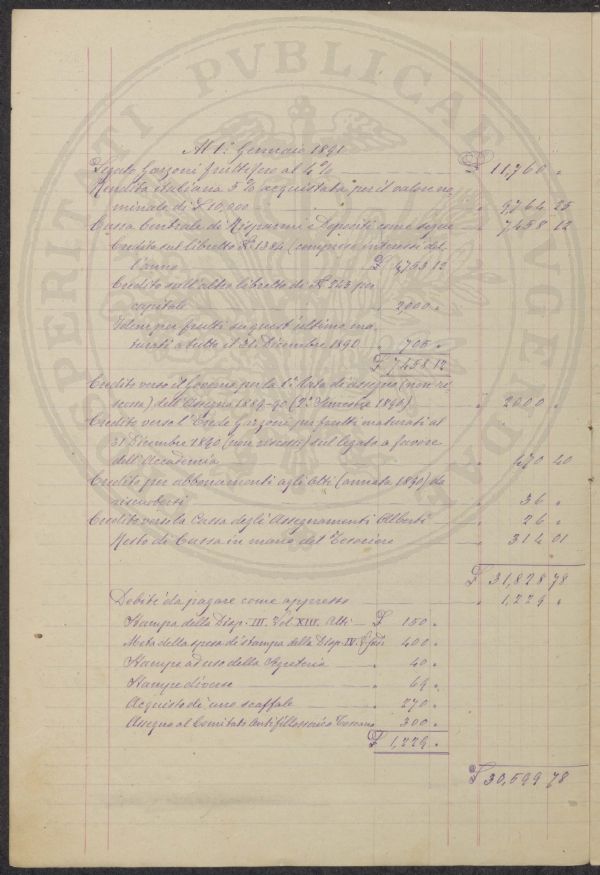 Al 1° Gennaio 1891
Legato Garzoni fruttifero al 4% £ 11,760 "
Rendita italiana 5% acquistata per il valore no
minale di £ 10,000 " 9,764 25
Cassa Centrale di Risparmi e Depositi come segue " 7458 12
Credito sul libretto N° 1384 (compresi interessi del
l'anno £ 4,753 12
Credito sull'altro libretto di N° 243 per
capitale " 2000 "
Idem per frutti su quest'ultimo ma
turati a tutto il 31 Dicembre 1890 " 705 "
£ 7,458 12
Credito verso il Governo per la 2a Rata di assegno (non ri
scossa) dell'Assegno 1889-90 (2° Semestre 1890) " 2000 "
Credito verso l'Erede Garzoni per frutti maturati al
31 Dicembre 1890 (non riscossi) sul legato a favore
dell'Accademia " 470 40
Credito per abbonamenti agli Atti (annata 1890) da
riscuotersi " 36 "
Credito verso la Cassa degli Assegnamenti Alberti " 26 "
Resto di Cassa in mano del Tesoriere " 314 01
£ 31,828 78
Debiti da pagare come appresso " 1,229 "
Stampa della Disp. III. Vol XIII. Atti £ 150 "
Metà della spesa di stampa della Disp. IV. " 400 "
Stampe ad uso della Segreteria " 40 "
Stampe diverse " 69 "
Acquisto di uno scaffale " 270 "
Assegno al Comitato Antifillosserico Toscano 300 "
£ 1,229 "
£ 30,599 78